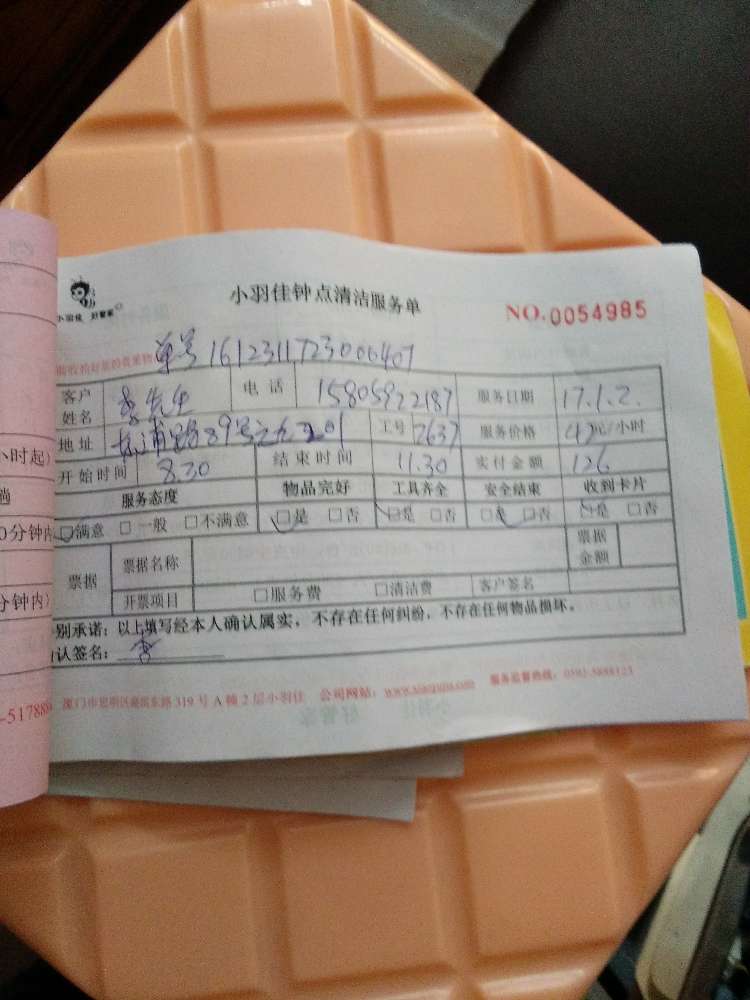 小羽佳钟点清洁服务单
NO.0054985
小羽佳 好管家
单号 1612311723006407
客户姓名 李先生 电话 15805922187 服务日期 17.1.2.
地址 89号之 201 工号 2637 服务价格 42元/小时
开始时间 8.30 结束时间 11.30 实付金额 126
服务态度 物品完好 工具齐全 安全结束 收到卡片
□满意 □一般 □不满意 □是 □否 □是 □否 □是 □否 □是 □否
票据 票据名称 票据金额
开票项目 □服务费 □清洁费 客户签名
别承诺：以上填写经本人确认属实，不存在任何纠纷，不存在任何物品损坏。
认签名： 李
厦门市思明区 东路319号A幢2层小羽佳 公司网站： 服务监督热线：0592-5888123
小时起）
趟
0分钟内
分钟内）
-517888